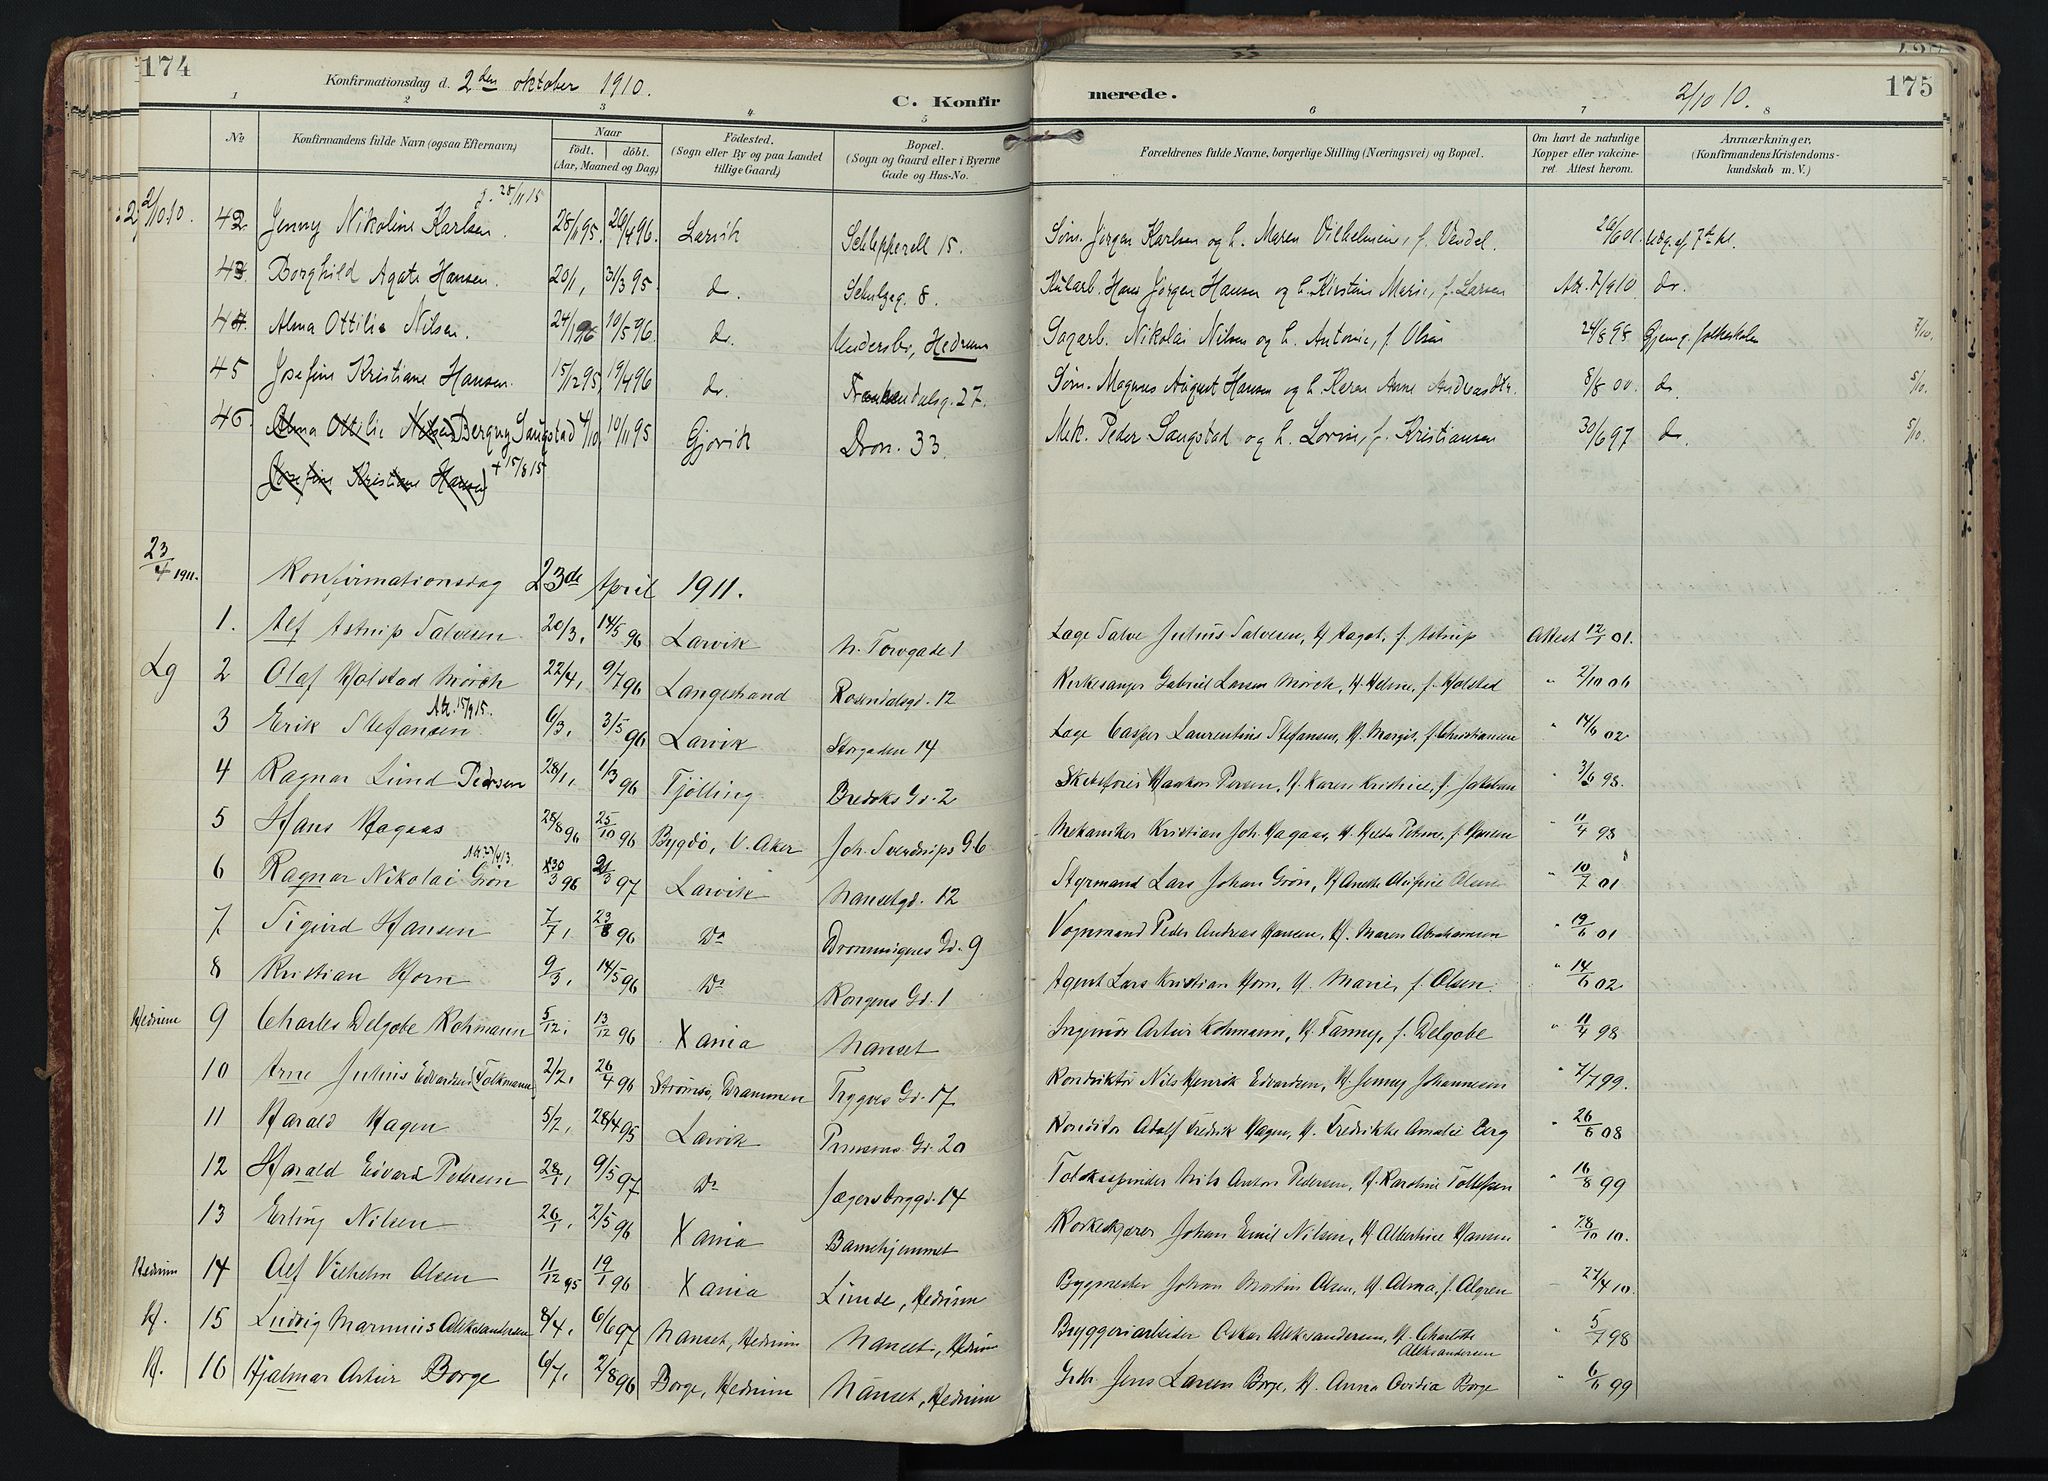 174
Konfirmationsdag d. 2den oktober 1910.
C. Konfirmerede.
2/10 10.
175
1 2 3 4 5 6 7 8
No
Konfirmandens fulde Navn (ogsaa Efternavn)
Naar
födt. döbt.
(Aar, Maaned og Dag)
Födested.
(Sogn eller By og paa Landet
tillige Gaard)
Bopæl.
(Sogn og Gaard eller i Byerne
Gade og Hus-No.
Forældrenes fulde Navne, borgerlige Stilling (Næringsvei) og Bopæl.
Om havt de naturlige
Kopper eller vakcine-
ret Attest herom.
Anmærkninger,
(Konfirmandens Kristendoms-
kundskab m. V.)
2/10 10. 42 Jenny Nikoline Karlsen. 28/11 95. 26/4 96. Larvik Schlepperell 15. Søm. Jørgen Karlsen og h. Maren Vilhelmine, f. Vendel. 26/6 01. Udg. af 7de kl.
43 Borghild Agate Hansen. 20/1, 31/3 95 do. Schulzeg. 8. Kularb. Hans Jørgen Hansen og h. Kirstine Marie, f. Larsen Att. 7/9 10. do.
44 Alma Ottilie Nilsen. 24/1 96 10/5 96. do. Undersbo, Hedrum Sagarb. Nikolai Nilsen og h. Antonie, f. Olsen 24/8 98 Gjenng. folkeskolen 7/10.
45 Josefine Kristiane Hansen. 15/12 95, 19/4 96 do. 27. Søm. Magnus August Hansen og h. Karen Anne Andreasdtr. 8/8 00. do 5/10.
46 Alma Ottilie Nilsen Bergny Saugstad 4/10, 10/11 95 Gjøvik Dron. 33. Mek. Peder Saugstad og h. Lovise, f. Kristiansen 30/6 97 do. 5/10.
(Josefine Kristiane Hansen) + 15/8 15
23/4 1911. Konfirmationsdag 23de April 1911.
1. Alf Astrup Salvesen 20/3, 14/5 96 Larvik N. Torvgade 1 Læge Salve Julius Salvesen, H. Aagot, f. Astrup Attest 12/1 01.
Lg 2 Olaf Holstad Mörch 22/4, 9/7 96 Langestrand Rosendalsgd. 12 Kirkesanger Gabriel Larsen Mörch, H. Helene, f. Holstad " 2/10 06
Att. 15/9 15.
3 Erik Stefansen 6/3, 3/5 96 Larvik Storgaden 14 Læge Casper Laurentius Stefansen, H. Margit, f. Christiansen " 14/6 02.
4 Ragnar Lund Pedersen 28/1, 1/3 96 Tjölling Bredoks Gd. 2 Skibsfører Haakon Persen, H. Karen Kristine, f. Jakobsen " 3/6 98.
5 Hans Hagaas 28/8 96 25/10 96 Bygdö, V. Aker Joh. Sverdrups G 6 Mekaniker Kristian Joh. Hagaas, H. Helda Petrine, f. Hansen " 11/4 98
6 Ragnar Nikolai Grön 30/3 96 21/3 97 Larvik Nansetgd. 12 Styrmand Lars Johan Grön, H. Anette Alufine Olsen " 10/7 01
7 Sigurd Hansen 7/7, 23/8 96 Do Dronningens Gd. 9 Vognmand Peder Andreas Hansen, H. Maren Abrahamsen " 19/6 01
8 Kristian Horn 9/3, 14/5 96 Do Kongens Gd. 1 Agent Lars Kristian Horn, H. Marie, f. Olsen. " 14/6 02
Hedrum 9 Charles Delgobe Kohmann 5/12, 13/12 96 Xania Nanset Ingeniör Artur Kohmann, H. Fanny, f. Delgobe " 11/4 98
10 Arne Julius Edvardsen (Folkmann) 2/2, 26/4 96 Strömsö, Drammen Trygves Gd. 17 Konduktör Nils Henrik Edvardsen, H. Jenny Johannesen " 7/7 99.
11 Harald Hagen 5/2, 28/4 95 Larvik Prinsens Gd. 20 Konditor Adolf Fredrik Hagen, H. Fredrikke Amalie Berg " 26/6 08
12 Harald Edvard Petersen 28/1, 9/5 97 Do Jægersborggd. 14 Tobakspinder Nils Anton Pedersen, H. Karoline Tollefsen " 16/8 99
13 Erling Nilsen 26/1, 2/5 96 Xania Barnehjemmet Korkeskjærer Johan Emil Nilsen, H. Albertine Hansen " 28/10 10.
Hedrum 14 Alf Vilhelm Olsen 11/12 95 19/1 96 Xania Lunde, Hedrum Bygmester Johan Martin Olsen, H. Alma, f. Algren 27/4 10.
H. 15 Ludvig Marinius Aleksandersen 8/4, 6/6 97 Nanset, Hedrum Nanset, Hedrum Bryggeriarbeider Oskar Aleksandersen, H. Charlotte Aleksandersen " 5/7 98
H. 16 Hjalmar Artur Borge 6/7, 2/8 96 Borge, Hedrum Nanset, Hedrum Grbr. Jens Larsen Borge, H. Anna Ovidia Borge " 6/6 99